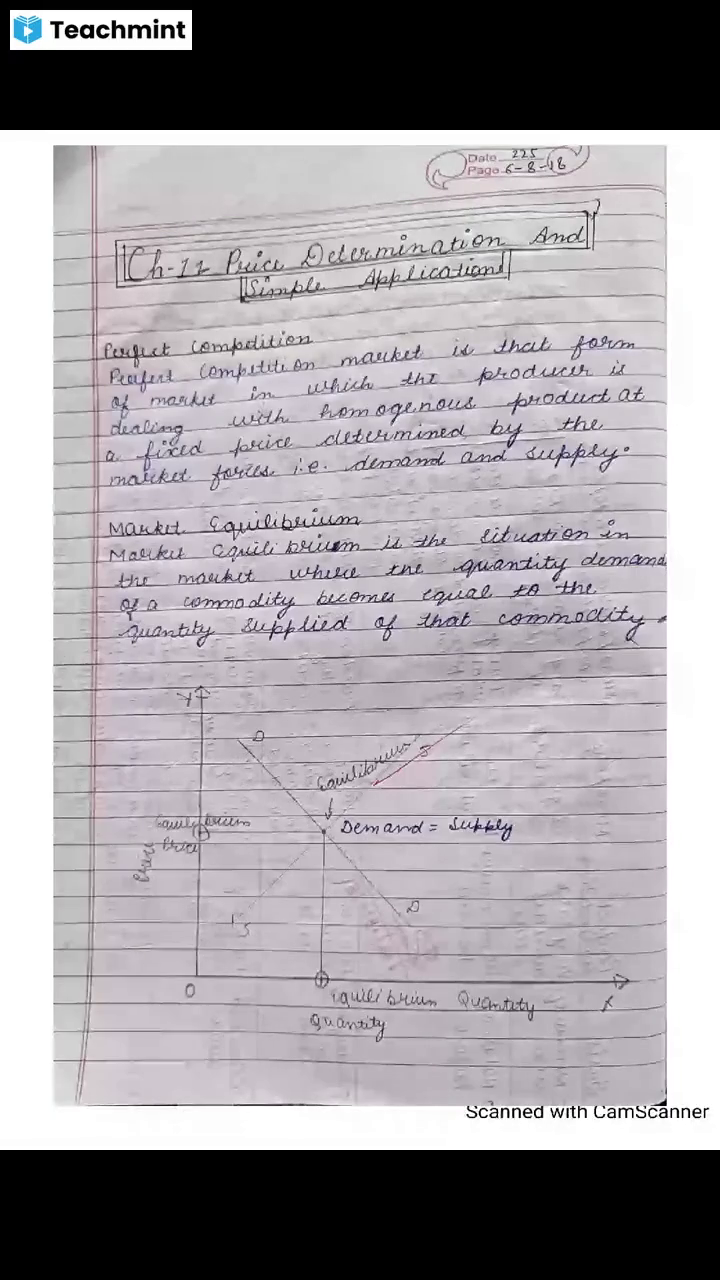 Teachmint
Date 225
Page 6-8-18
Ch-11 Price Determination And
Simple Applications
Perfect Competition
Perfect Competition market is that form
of market in which the producer is
dealing with homogenous product at
a fixed price determined by the
market forces i.e. demand and supply.
Market Equilibrium
Market Equilibrium is the situation in
the market where the quantity demand
of a commodity becomes equal to the
quantity supplied of that commodity.
Y
D
Equilibrium
S
Equilibrium
Price
Price
Demand = Supply
D
S
O
Equilibrium Quantity
X
Quantity
Scanned with CamScanner